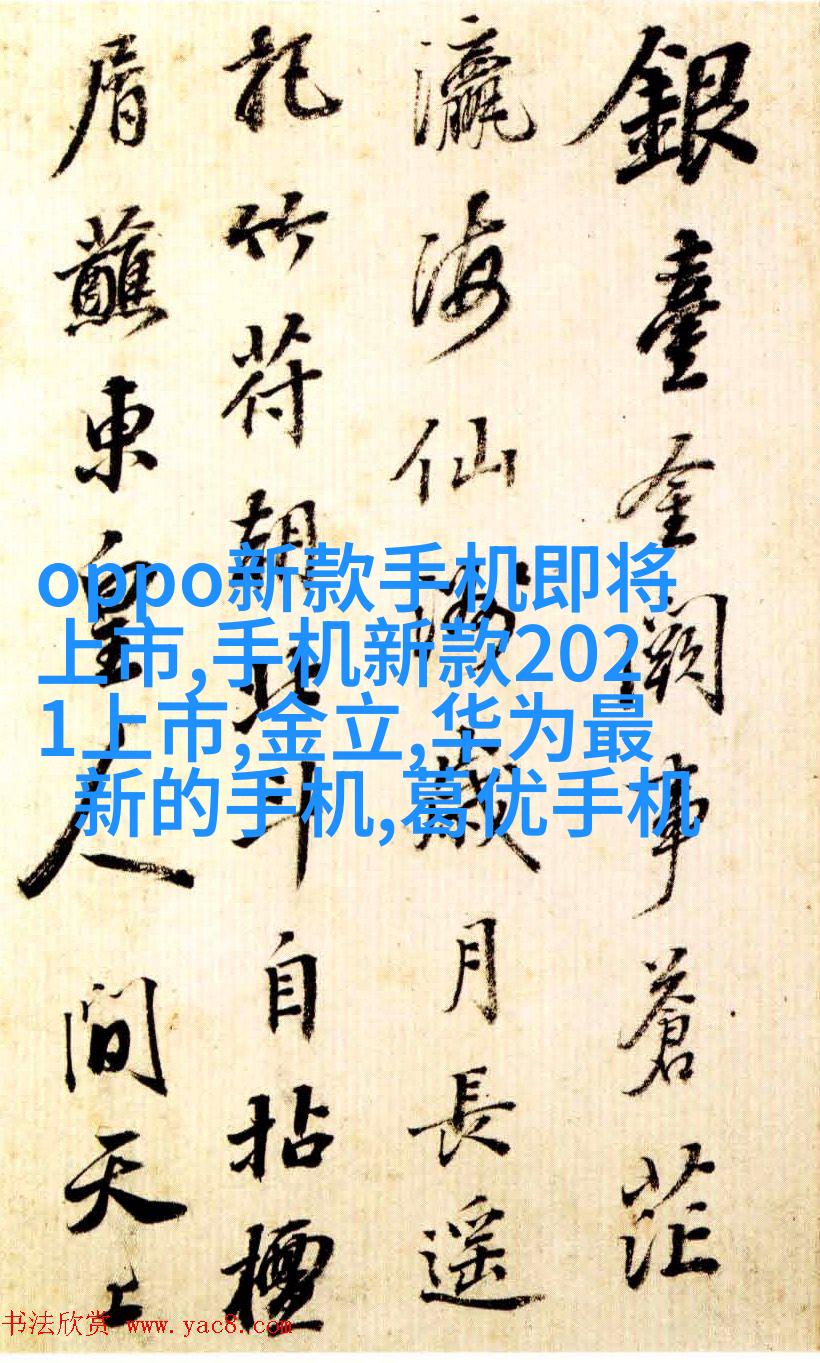 銀臺金闕事蒼茫
瀛海仙歲月長遥
記竹符朝北斗自拈檀
屑蘸東皇人間天上
oppo新款手机即将
上市,手机新款202
1上市,金立,华为最
新的手机,葛优手机
书法欣赏 www.yac8.com